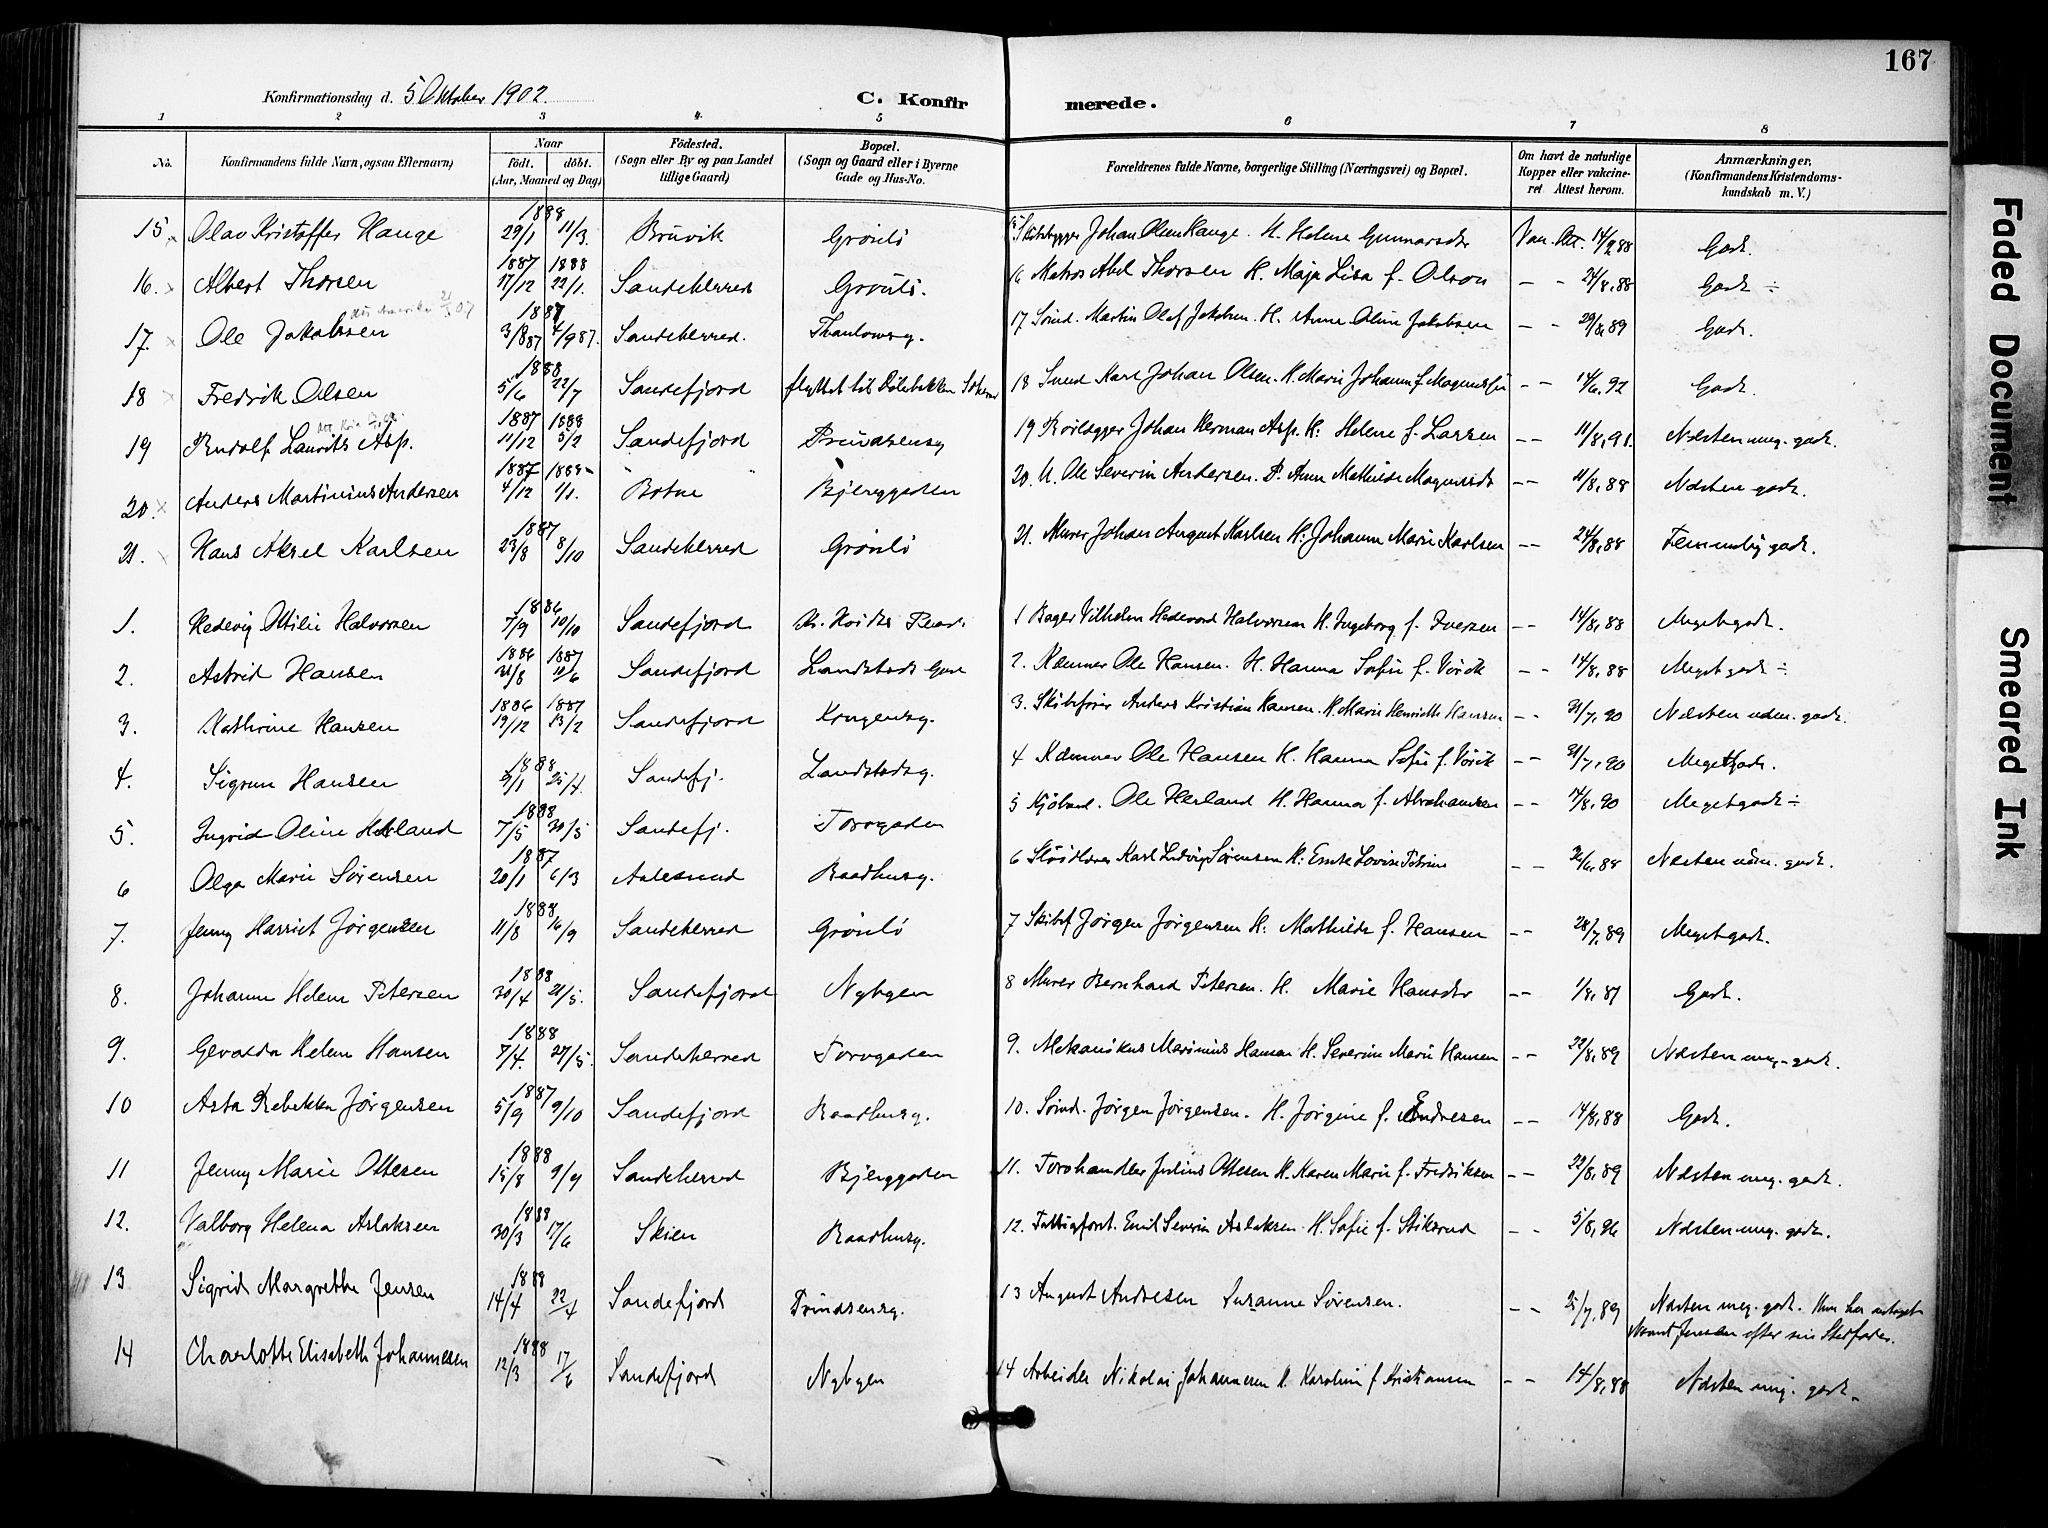 167
Konfirmationsdag d. 5 Oktober 1902.
C. Konfirmerede.
1 2 3 4. 5 6 7 8
No. Konfirmandens fulde Navn, ogsaa Efternavn) Naar födt. döbt. (Aar, Maaned og Dag) Födested. (Sogn eller By og paa Landet tillige Gaard) Bopæl. (Sogn og Gaard eller i Byerne Gade og Hus-No. Forældrenes fulde Navne, borgerlige Stilling (Næringsvei) og Bopæl. Om havt de naturlige Kopper eller vakcineret Attest herom. Anmærkninger, (Konfirmandens Kristendomskundskab m. V.)
15 Olav Kristoffer Hauge 1888 29/1 11/3. Bruvik Grönli 15 Johan Olsen Hauge. H. Helene Gunnarsdtr Vac. Att. 14/9 88 Godt.
16. Albert Thorsen 1887 17/12 1888 22/1. Sandeherred Grönli. 16 Matros Abel Thorsen H. Maja Lisa f. Olson - - 24/8, 88 Godt ÷
17. Ole Jakobsen 1887 3/8 87 4/9 87. Sandeherred. Thaulowsg. 17 Sömd. Martin Olaf Jakobsen. H. Anne Oline Jakobsen - - 29/8, 89 Godt.
18 Fredrik Olsen 1888 5/6 22/7 Sandefjord flyttet til 18 Smed Karl Johan Olsen. H. Marie Johanne f. - - 14/6, 92 Godt.
19 Rudolf Laurits Asp. 1887 11/12 1888 5/2 Sandefjord Prindsensg 19 Johan Herman Asp. H. Helene f. Larsen - - 11/8, 91. Næsten meg. godt.
20. Anders Martinius Andersen 1887 4/12 1888 1/1. Botne Bjerggaden 20. U. Ole Severin Andersen. P. Anne Mathilde Magnusdtr - - 11/8, 88 Næsten godt.
21. Hans Aksel Karlsen 1887 23/8 8/10 Sandeherred Grönli 21. Murer Johan August Karlsen H. Johanne Marie Karlsen - - 24/8, 88 Temmelig godt.
1. Hedevig Ottilie Halvorsen 1886 7/9 10/10 Sandefjord 1 Bager Vilhelm Halvorsen H. Ingeborg f. Iversen - - 14/8, 88 Meget godt.
2. Astrid Hansen 1886 1887 Sandefjord Landstads 2. Kæmner Ole Hansen. H. Hanna Sofie f. Virik - - 14/8, 88 Meget godt ÷
3. Kathrine Hansen 1886 19/12 1887 13/2 Sandefjord Kongensg. 3. Skibsförer Anders Kristian Hansen. H. Marie Henriette Hansen - - 31/7, 90 Næsten udm. godt.
4. Sigrun Hansen 1888 25/4. Sandefj. Landstadsg. 4 Kæmner Ole Hansen H. Hanna Sofie f. Virik - - 31/7, 90 Meget godt.
5. Ingrid Oline Herland 1888 7/5 20/5 Sandefj. Torvgaden 5 Kjöbmd. Ole Herland H. Hanna f. Abrahamsen - - 14/8, 90 Meget godt ÷
6 Olga Marie Sörensen 1887 20/1 6/3 Aalesund Raadhusg. 6 Karl Ludvig Sörensen H. Lovise - - 26/6, 88 Næsten udm. godt.
7. Jenny Harriet Jörgensen 1888 11/8 16/9 Sandeherred Grönli 7 Skibsf Jörgen Jörgensen H. Mathilde f. Hansen - - 28/7, 89 Meget godt.
8. Johanne Helene Petersen 1888 30/4 21/5. Sandefjord Nybyen 8 Murer Bernhard Petersen. H. Marie Hansdtr - - 1/8, 87 Godt.
9. Gevalda Helene Hansen 1888 7/4. 27/5. Sandeherred Torvgaden 9. Mekanikus Marinius Hansen H. Severine Marie Hansen - - 22/8, 89 Næsten meg. godt.
10 Asta Rebekka Jörgensen 1887 5/9 9/10 Sandefjord Raadhusg. 10. Sömd. Jörgen Jörgensen. H. Jörgine f. Endresen - - 14/8, 88 Godt.
11 Jenny Marie Ottesen 1888 15/8 9/9 Sandeherred Bjerggaden 11. Torvhandler Julius Ottesen H. Karen Marie f. Fredriksen - - 22/8, 89 Næsten meg. godt.
12. Valborg Helena Aslaksen 1888 30/3 17/6 Skien Raadhusg. 12. Fattigforst. Emil Severin Aslaksen. H. Sofie f. Stikerud - - 5/8, 96 Næsten meg. godt.
13 Sigrid Margrethe Jensen 1888 14/4 22/4 Sandefjord Prindsensg. 13 August Andresen Susanne Sörensen. - - 25/7, 89 Næsten meg. godt. Hun har antaget Navnet Jensen efter sin Stedfader.
14 Charlotte Elisabeth Johannesen 1888 12/3 17/6 Sandefjord Nybyen 14 Arbeider Nikolai Johannesen H. Karoline f. Kristiansen - - 14/8, 88 Næsten meg. godt.
Faded Document
Smeared Ink